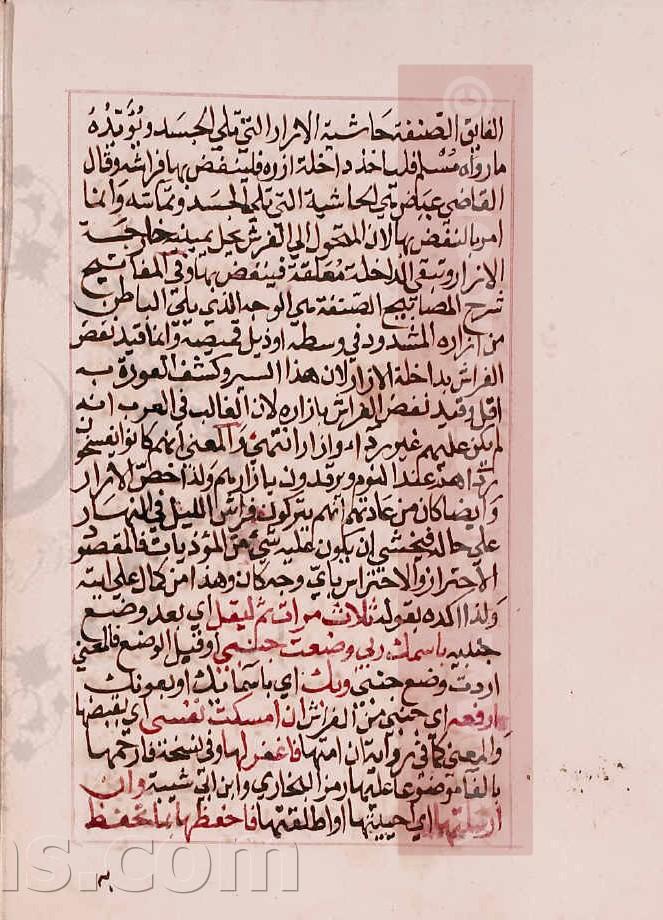 الفائق الصنفة حاشية الازار التي تلي الجسد ويؤيده
ما رواه مسلم فلياخذ داخلة ازاره فلينفض بها فراشه وقال
القاضي عياض هي الحاشية التي تلي الجسد وتماسه وانما
امر بالنفض بها لان المتحول الى الفرش يحل بيمينه خارجة
الازار وتبقى الداخلة معلقة فينفض بها وفي المفاتيح
شرح المصابيح الصنفة هي الوجه الذي يلي الباطن
من ازاره المشدود في وسطه او ذيل قميصه وانما قيد نفض
الفراش بداخلة الازار لان هذا السير وكشف العورة به
اقل وقيد نفض الفراش بازاره لان الغالب في العرب انه
لم يكن عليهم غير رداء وازار انتهى والمعنى انهم كانوا
رداهم عند النوم ويرقدون بازارهم ولذا خص الازار
وايضا كان من عادتهم انهم يتركون فراش الليل في النهار
على حاله فيخشى ان يكون عليه شئ من المؤذيات فالمقصود
الاحتراز والاحتراس باي وجه كان وهذا من كمال
ولذا اكده بقوله ثلاث مرات ثم ليقل اي بعد وضع
جنبه باسمك ربي وضعت جنبي او قبل الوضع فالمعنى
اردت وضع جنبي وبك اي باسمائك او بعونك
ارفعه اي جنبي من الفراش ان امسكت نفسي اي بقبضها
والمعنى كما في رواية ان امتها فاغفر لها وفي نسخة فارحمها
بالفا موضوعا عليها رمز البخاري وابن ابي شيبة وان
ارسلتها اي احييتها او اطلقتها فاحفظها بما تحفظ
ns.com